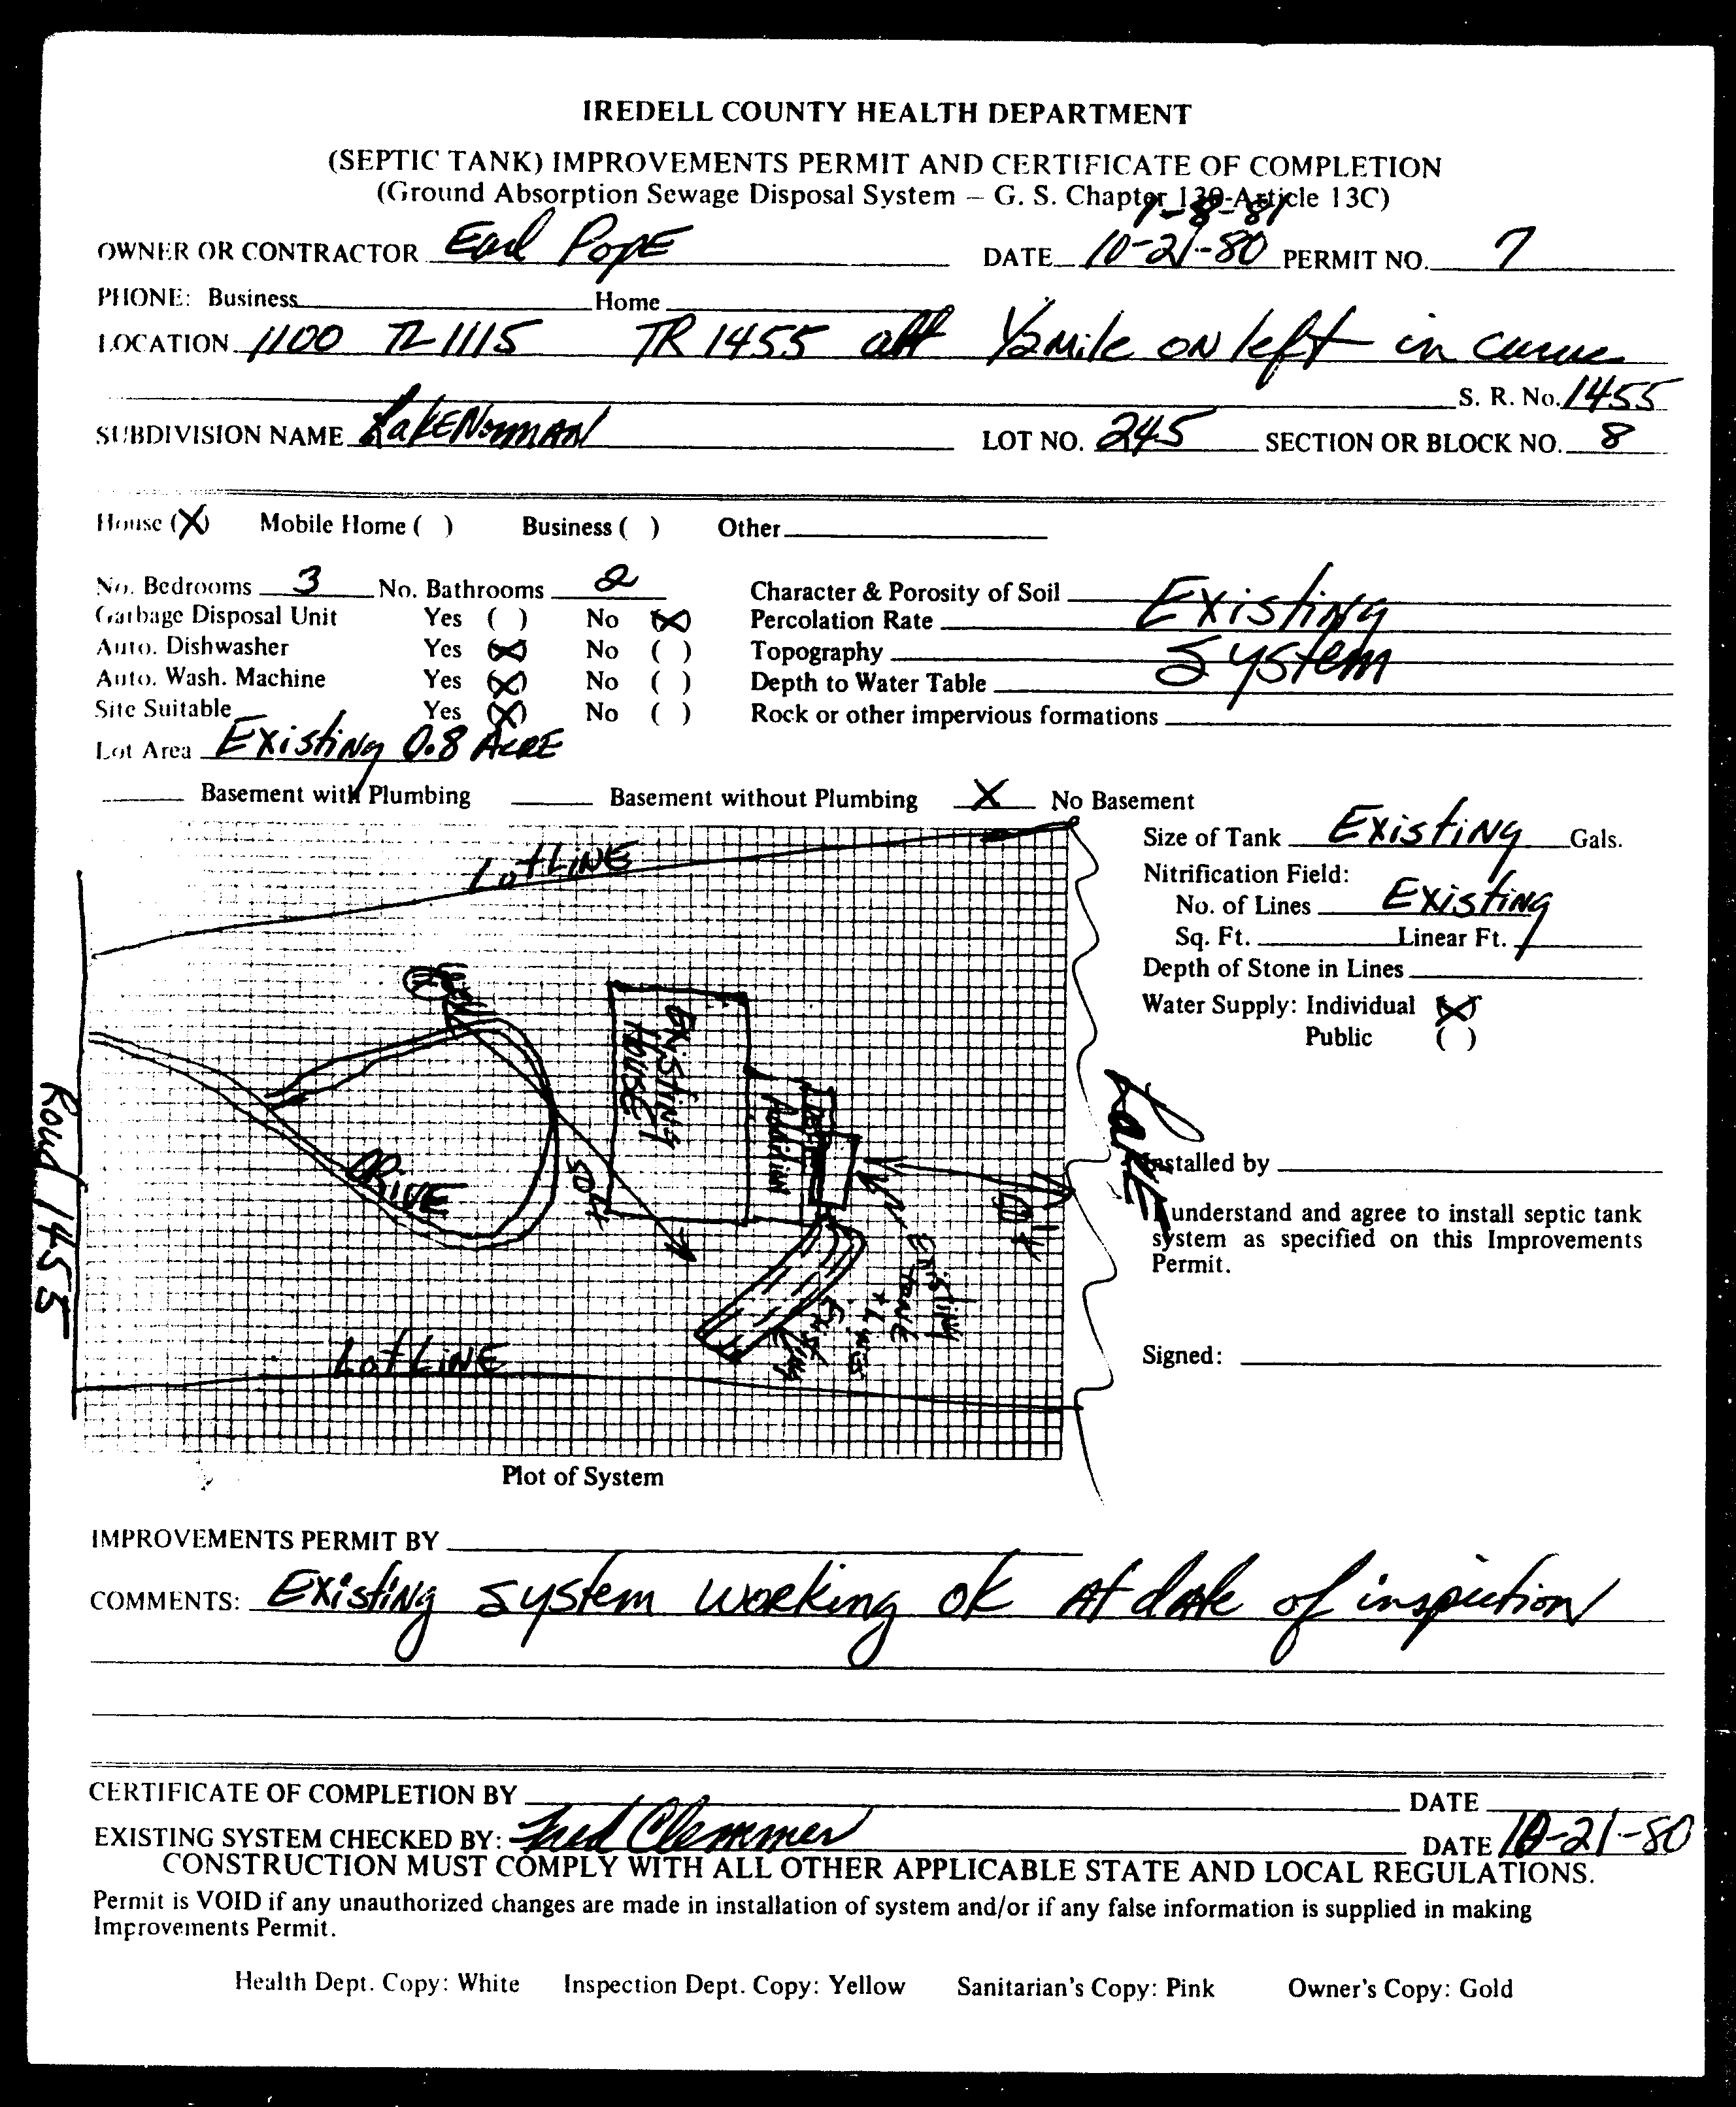 IREDELL COUNTY HEALTH DEPARTMENT
(SEPTIC TANK) IMPROVEMENTS PERMIT AND CERTIFICATE OF COMPLETION
(Ground Absorption Sewage Disposal System — G. S. Chapter 130-Article 13C)
1-8-81
OWNER OR CONTRACTOR Earl Pope DATE 10-21-80 PERMIT NO. 7
PHONE: Business Home
LOCATION 1100 TL 1115 TR 1455 1/2 mile on left in curve
S. R. No. 1455
SUBDIVISION NAME Lake Norman LOT NO. 245 SECTION OR BLOCK NO. 8
House (X) Mobile Home ( ) Business ( ) Other
No. Bedrooms 3 No. Bathrooms 2 Character & Porosity of Soil Existing
Garbage Disposal Unit Yes ( ) No (X) Percolation Rate
Auto. Dishwasher Yes (X) No ( ) Topography System
Auto. Wash. Machine Yes (X) No ( ) Depth to Water Table
Site Suitable Yes (X) No ( ) Rock or other impervious formations
Lot Area Existing 0.8 Acre
Basement with Plumbing Basement without Plumbing X No Basement
Size of Tank Existing Gals.
Nitrification Field:
No. of Lines Existing
Sq. Ft. Linear Ft.
Depth of Stone in Lines
Water Supply: Individual (X)
Public ( )
Lot Line
Well
Existing House
Addition
Drive
50 ft
Existing Tank + Lines
Existing
Lot Line
Road 1455
Lake
Installed by
I understand and agree to install septic tank
system as specified on this Improvements
Permit.
Signed:
Plot of System
IMPROVEMENTS PERMIT BY
COMMENTS: Existing system working ok At date of inspection
CERTIFICATE OF COMPLETION BY DATE
EXISTING SYSTEM CHECKED BY: Fred Clemmer DATE 10-21-80
CONSTRUCTION MUST COMPLY WITH ALL OTHER APPLICABLE STATE AND LOCAL REGULATIONS.
Permit is VOID if any unauthorized changes are made in installation of system and/or if any false information is supplied in making
Improvements Permit.
Health Dept. Copy: White Inspection Dept. Copy: Yellow Sanitarian's Copy: Pink Owner's Copy: Gold